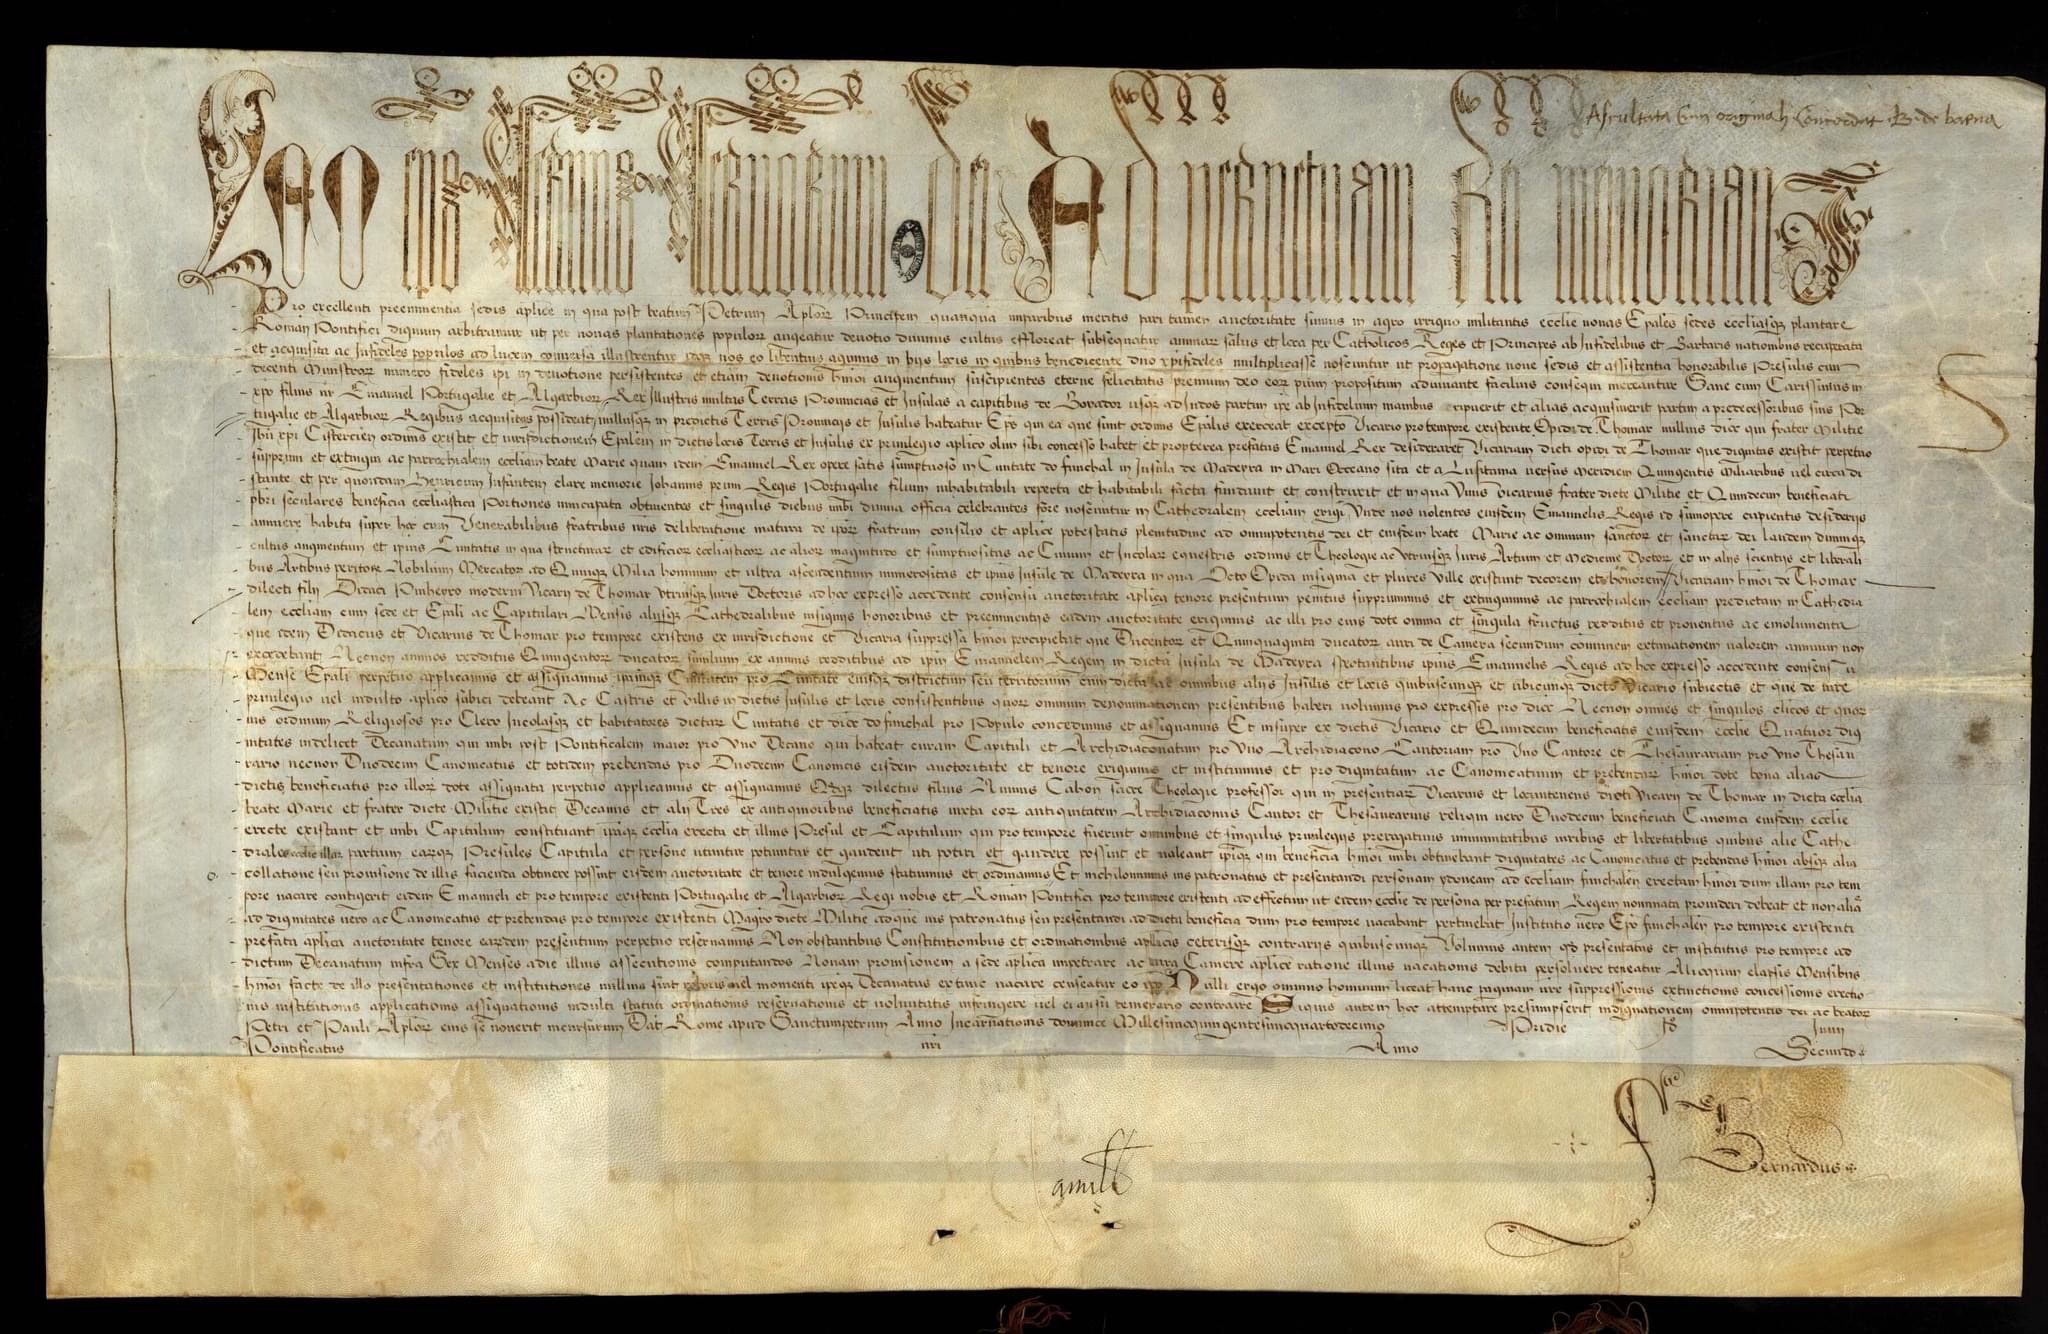 Ascultata Cum originali Concordat B. de baena
Leo eps Servus Servorum dei Ad perpetuam Rei memoriam
Pro excellenti preeminentia sedis aplice in qua post beatum Petrum Aplor Principem quanqua imparibus meritis pari tamen auctoritate sumus in agro irriguo militantis ecclie novas Epales sedes eccliasq plantare
Roman Pontifici dignum arbitramur ut per novas plantationes populor augeatur devotio divinus cultus effloreat subsequatur animar salus et loca per Catholicos Reges et Principes ab Infidelibus et Barbaris nationibus recuperata
et acquisita ac Infideles populos ad lucem conversa illustrentur itaq nos eo libentius agimus in hijs locis in quibus benedicente dno xpifideles multiplicasse noscuntur ut propagatione nove sedis et assistentia honorabilis Presulis cum
decenti Ministror numero fideles ipi in devotione persistentes et etiam devotionis hmoi augmentum suscipientes eterne felicitatis premium deo eor pium propositum adiuvante facilius consequi mereantur Sane cum Carissimus in
xpo filius nr Emanuel Portugalie et Algarbior Rex Illustris multas Terras Provincias et Insulas a capitibus de Boyador usq ad Indos partim ipe ab Infidelium manibus eripuerit et alias acquisiverit partim a predecessoribus suis Por
tugalie et Algarbior Regibus acquisitas possideat nullusq in predictis Terris Provincijs et Insulis habeatur Eps qui ea que sunt ordinis Epalis exerceat excepto Vicario pro tempore existente Opidi de Thomar nullius dioc qui frater Militie
Jhu xpi Cistercien ordinis existit et iurisdictionem Epalem in dictis locis Terris et Insulis ex privilegio aplico olim sibi concesso habet et propterea prefatus Emanuel Rex desideraret Vicariam dicti opidi de Thomar que dignitas existit perpetuo
supprimi et extingui ac parrochialem eccliam beate Marie quam idem Emanuel Rex opere satis sumptuoso in Civitate do funchal in Insula de Madeyra in Mari Occeano sita et a Lusitania versus meridiem Quingentis miliaribus vel circa di
stante et per quondam Henricum Infantem clare memorie Johannis primi Regis Portugalie filium inhabitabili reperta et habitabili facta fundavit et construxit et in qua Unus Vicarius frater dicte Militie et Quindecim beneficiati
pbri seculares beneficia eccliastica Portiones nuncupata obtinentes et singulis diebus inibi divina officia celebrantes fore noscuntur in Cathedralem eccliam erigi Unde nos volentes eiusdem Emanuelis Regis id summopere cupientis desiderijs
annuere habita super hoc cum Venerabilibus fratribus nris deliberatione matura de ipor fratrum consilio et aplice potestatis plenitudine ad omnipotentis dei et eiusdem beate Marie ac omnium sanctor et sanctar dei laudem divinique
cultus augmentum et ipius Civitatis in qua structurar et edificior eccliasticor ac alior magnitudo et sumptuositas ac Civium et Incolar equestris ordinis et Theologie ac Utriusq Iuris Artium et Medicine Doctor et in alijs scientijs et liberali
bus Artibus peritor Nobilium Mercator ad Quinq Milia hominum et ultra ascendentium numerositas et ipius Insule de Madeyra in qua Octo Opida insignia et plures Ville existunt decorem et honorem Vicariam hmoi de Thomar
dilecti filij Didaci Pinheyro moderni Vicarij de Thomar Utriusq Iuris Doctoris ad hoc expresso accedente consensu auctoritate aplica tenore presentium penitus supprimimus et extinguimus ac parrochialem eccliam predictam in Cathedra
lem eccliam cum sede et Epali ac Capitulari Mensis alijsq Cathedralibus insignijs honoribus et preeminentijs eadem auctoritate erigimus ac illi pro eius dote omnia et singula fructus redditus et proventus ac emolumenta
que idem Didacus et Vicarius de Thomar pro tempore existens ex iurisdictione et Vicaria suppressa hmoi percipiebat que Ducentor et Quinquaginta ducator auri de Camera secundum communem extimationem valorem annuum non
excedebant Necnon annuos redditus Quingentor ducator similium ex annuis redditibus ad ipm Emanuelem Regem in dicta Insula de Madeyra spectantibus ipius Emanuelis Regis ad hoc expresso accedente consensu
Mense Epali perpetuo applicamus et assignamus ipamq Civitatem pro Civitate eiusq districtum seu territorium cum dicta ac omnibus alijs Insulis et locis quibuscunq et ubicunq dicto Vicario subiectis et que de iure
privilegio vel indulto aplico subici debeant Ac Castris et villis in dictis Insulis et locis consistentibus quor omnium denominationem presentibus haberi volumus pro expressis pro dioc Necnon omnes et singulos clicos et quor
vis ordinum Religiosos pro Clero Incolasq et habitatores dictar Civitatis et dioc do funchal pro Populo concedimus et assignamus Et insuper ex dictis Vicario et Quindecim beneficiatis eiusdem ecclie Quatuor dig
nitates videlicet Decanatum qui inibi post Pontificalem maior pro Uno Decano qui habeat curam Capituli et Archidiaconatum pro Uno Archidiacono Cantoriam pro Uno Cantore et Thesaurariam pro Uno Thesau
rario necnon Duodecim Canonicatus et totidem prebendas pro Duodecim Canonicis eisdem auctoritate et tenore erigimus et instituimus et pro dignitatum ac Canonicatuum et prebendar hmoi dote bona alias
dictis beneficiatis pro illor dote assignata perpetuo applicamus et assignamus Qdq dilectus filius Nunus Cahon sacre Theologie professor qui in presentiar Vicarius et locumtenens dicti Vicarij de Thomar in dicta ecclia
beate Marie et frater dicte Militie existit Decanus et alij Tres ex antiquioribus beneficiatis iuxta eor antiquitatem Archidiaconus Cantor et Thesaurarius reliqui vero Duodecim beneficiati Canonici eiusdem ecclie
erecte existant et inibi Capitulum constituant ipaq ecclia erecta et illius Presul et Capitulum qui pro tempore fuerint omnibus et singulis privilegijs prerogativis immunitatibus iuribus et libertatibus quibus alie Cathe
drales ecclie illar partium earq Presules Capitula et persone utuntur potiuntur et gaudent uti potiri et gaudere possint et valeant ipiq qui beneficia hmoi inibi obtinebant dignitates ac Canonicatus et prebendas hmoi absq alia
collatione seu provisione de illis facienda obtinere possint eisdem auctoritate et tenore indulgemus statuimus et ordinamus Et nichilominus ius patronatus et presentandi personam ydoneam ad eccliam funchalen erectam hmoi dum illam pro tem
pore vacare contigerit eidem Emanueli et pro tempore existenti Portugalie et Algarbior Regi nobis et Roman Pontifici pro tempore existenti ad effectum ut eidem ecclie de persona per prefatum Regem nominata provideri debeat et non alia
ad dignitates vero ac Canonicatus et prebendas pro tempore existenti Magro dicte Militie ad que ius patronatus seu presentandi ad dicta beneficia dum pro tempore vacabant pertinebat Institutio vero Epo funchalen pro tempore existenti
prefata aplica auctoritate tenore eardem presentium perpetuo reservamus Non obstantibus Constitutionibus et ordinationibus aplicis ceterisq contrarijs quibuscunq Volumus autem qd presentatus et institutus pro tempore ad
dictum Decanatum infra Sex Menses a die illius assecutionis computandos Novam provisionem a sede aplica impetrare ac iura Camere aplice ratione illius vacationis debita persolvere teneatur Alioquin elapsis Mensibus
hmoi facte de illo presentationes et institutiones nullius sint roboris vel momenti ipeq Decanatus ex tunc vacare censeatur eo ipo Nulli ergo omnino hominum liceat hanc paginam nre suppressionis extinctionis concessionis erectio
nis institutionis applicationis assignationis indulti statuti ordinationis reservationis et voluntatis infringere vel ei ausu temerario contraire Siquis autem hoc attemptare presumpserit indignationem omnipotentis dei ac beator
Petri et Pauli Aplor eius se noverit incursurum Dat Rome apud Sanctumpetrum Anno Incarnationis dominice Millesimoquingentesimoquartodecimo Pridie Id Junij
Pontificatus nri Anno Secundo
Bernardus